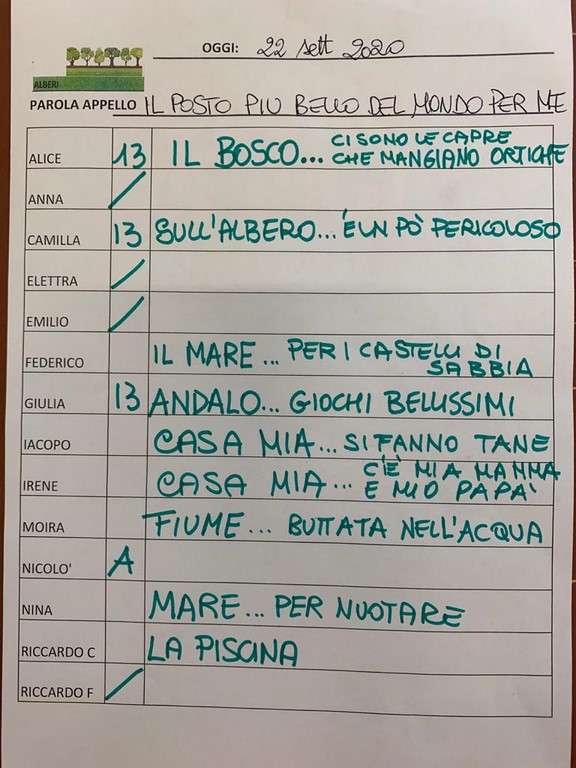 OGGI: 22 sett 2020
ALBERI
PAROLA APPELLO IL POSTO PIU BELLO DEL MONDO PER ME
ALICE 13 IL BOSCO... CI SONO LE CAPRE
CHE MANGIANO ORTICHE
ANNA /
CAMILLA 13 SULL'ALBERO... È UN PÒ PERICOLOSO
ELETTRA /
EMILIO /
FEDERICO IL MARE... PER I CASTELLI DI
SABBIA
GIULIA 13 ANDALO... GIOCHI BELLISSIMI
IACOPO CASA MIA... SI FANNO TANE
IRENE CASA MIA... C'È MIA MAMMA
E MIO PAPA'
MOIRA FIUME... BUTTATA NELL'ACQUA
NICOLO' A
NINA MARE... PER NUOTARE
RICCARDO C LA PISCINA
RICCARDO F /